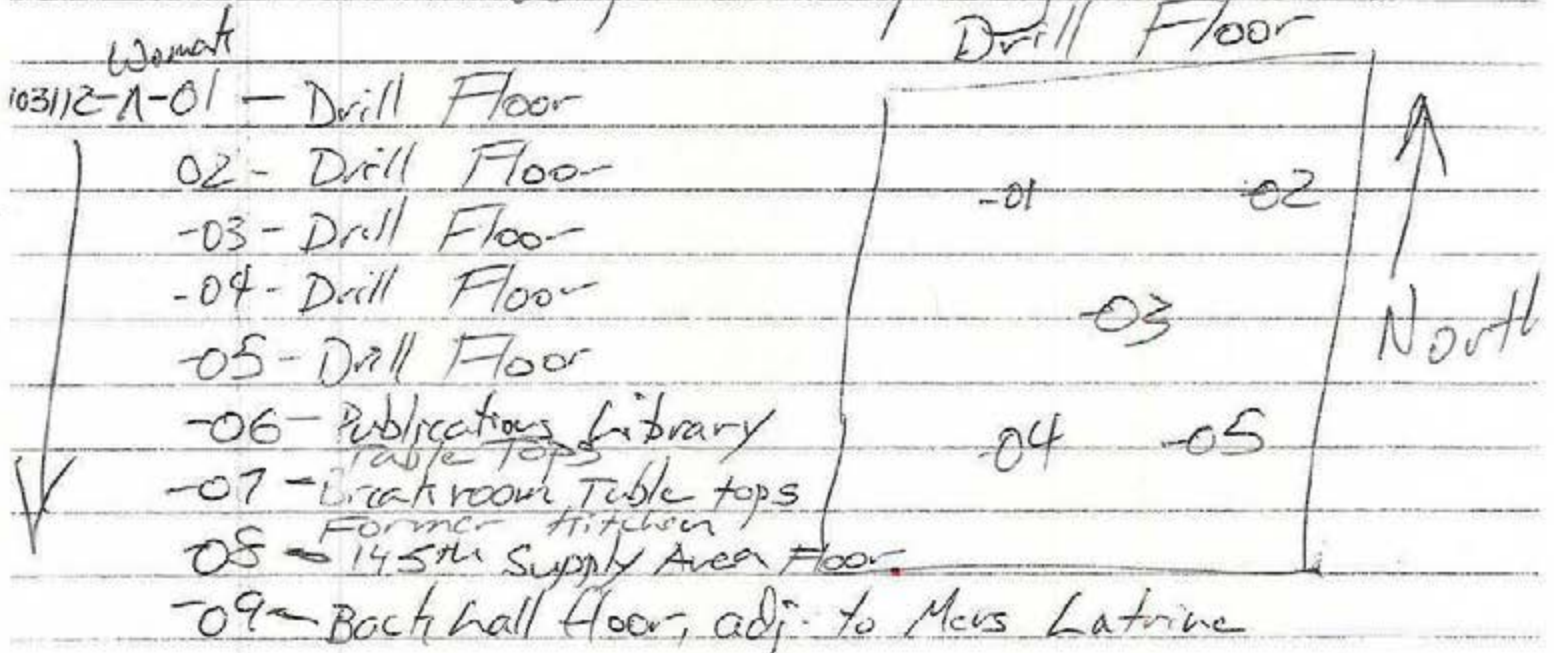 Drill Floor
103112-A-01 - Drill Floor
02 - Drill Floor
-03 - Drill Floor
-04 - Drill Floor
-05 - Drill Floor
-06 - Publications Library
Table Tops
-07 - Breakroom Table tops
Former Kitchen
-08 - 145th Supply Area Floor
-09 - Back hall floor, adj. to Mens Latrine
-01 -02
-03
-04 -05
North